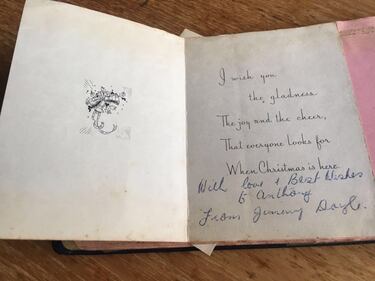 I wish you
the gladness
The joy and the cheer,
That everyone looks for
When Christmas is here
With love & Best Wishes
to Anthony
From Jimmy Doyle.